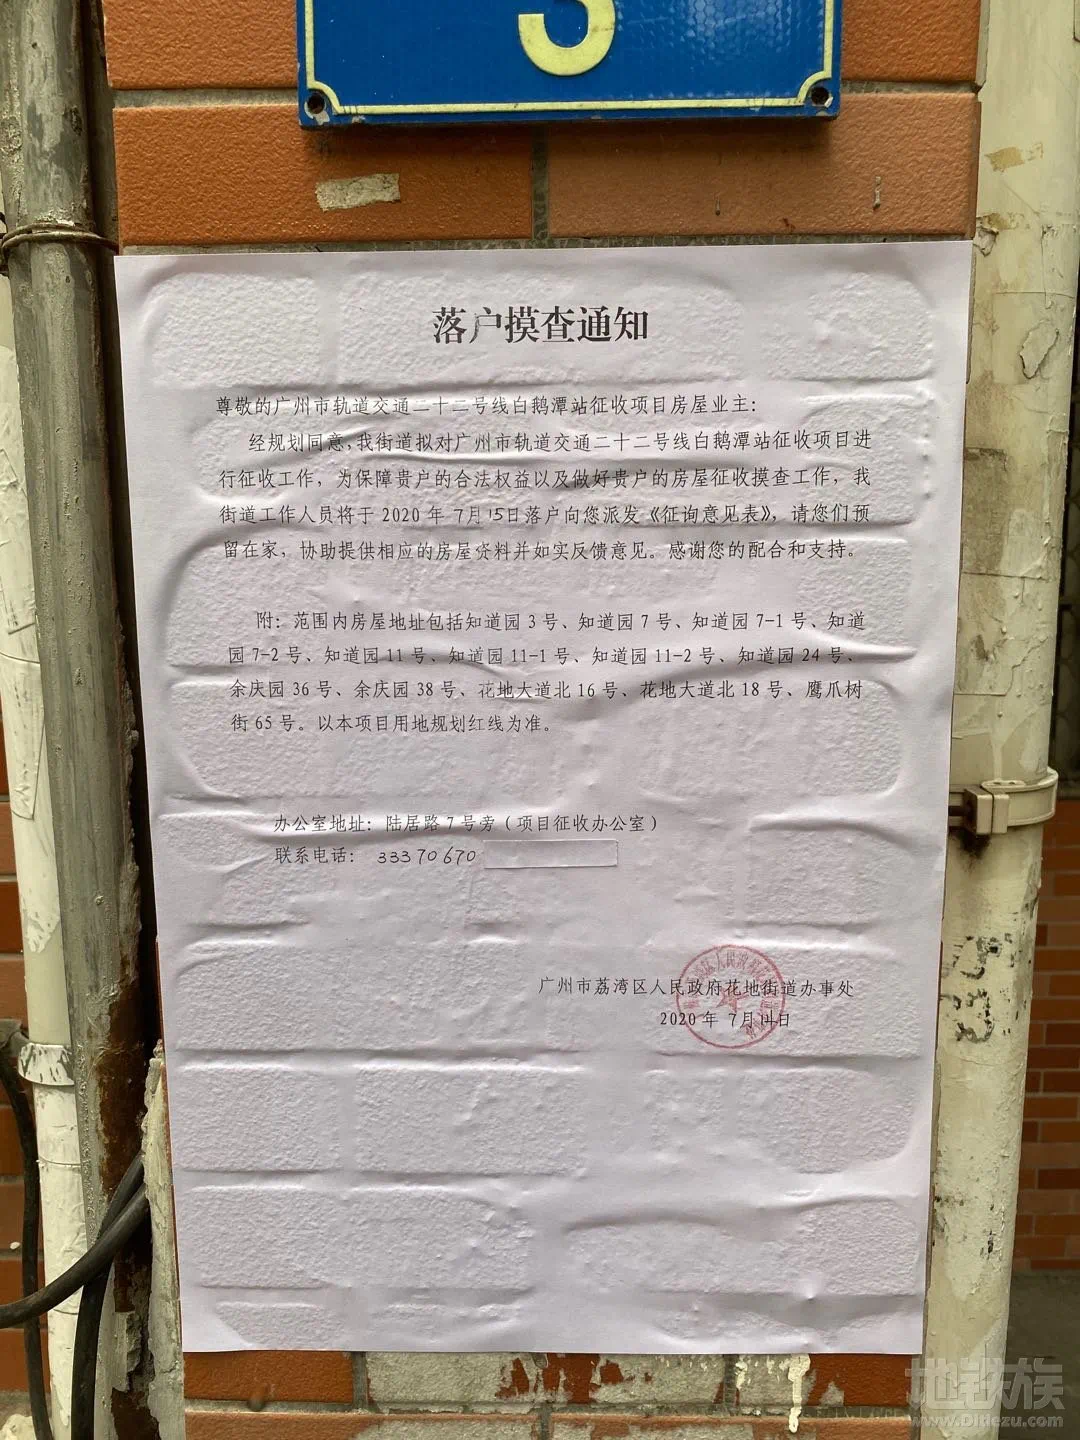 3
落户摸查通知
尊敬的广州市轨道交通二十二号线白鹅潭站征收项目房屋业主：
经规划同意，我街道拟对广州市轨道交通二十二号线白鹅潭站征收项目进
行征收工作，为保障贵户的合法权益以及做好贵户的房屋征收摸查工作，我
街道工作人员将于 2020 年 7月15日落户向您派发《征询意见表》，请您们预
留在家，协助提供相应的房屋资料并如实反馈意见。感谢您的配合和支持。
附：范围内房屋地址包括知道园 3 号、知道园 7 号、知道园 7-1 号、知道
园 7-2 号、知道园 11 号、知道园 11-1 号、知道园 11-2 号、知道园 24 号、
余庆园 36 号、余庆园 38 号、花地大道北 16 号、花地大道北 18 号、鹰爪树
街 65 号。以本项目用地规划红线为准。
办公室地址：陆居路 7 号旁（项目征收办公室）
联系电话：33370670
广州市荔湾区人民政府花地街道办事处
2020 年 7月14日
地铁族
www.Ditiezu.com